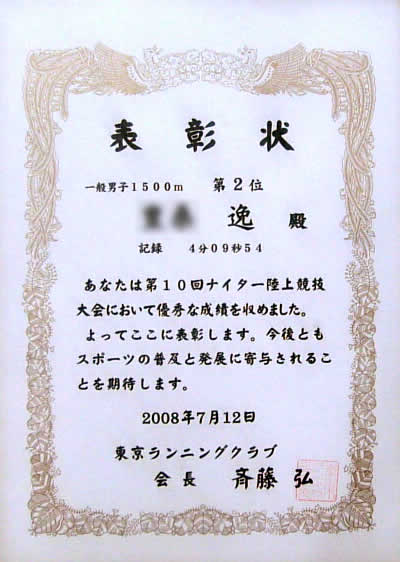 表彰状
一般男子1500m 第2位
逸 殿
記録 4分09秒54
あなたは第10回ナイター陸上競技
大会において優秀な成績を収めました。
よってここに表彰します。今後とも
スポーツの普及と発展に寄与されるこ
とを期待します。
2008年7月12日
東京ランニングクラブ
会長 斉藤 弘